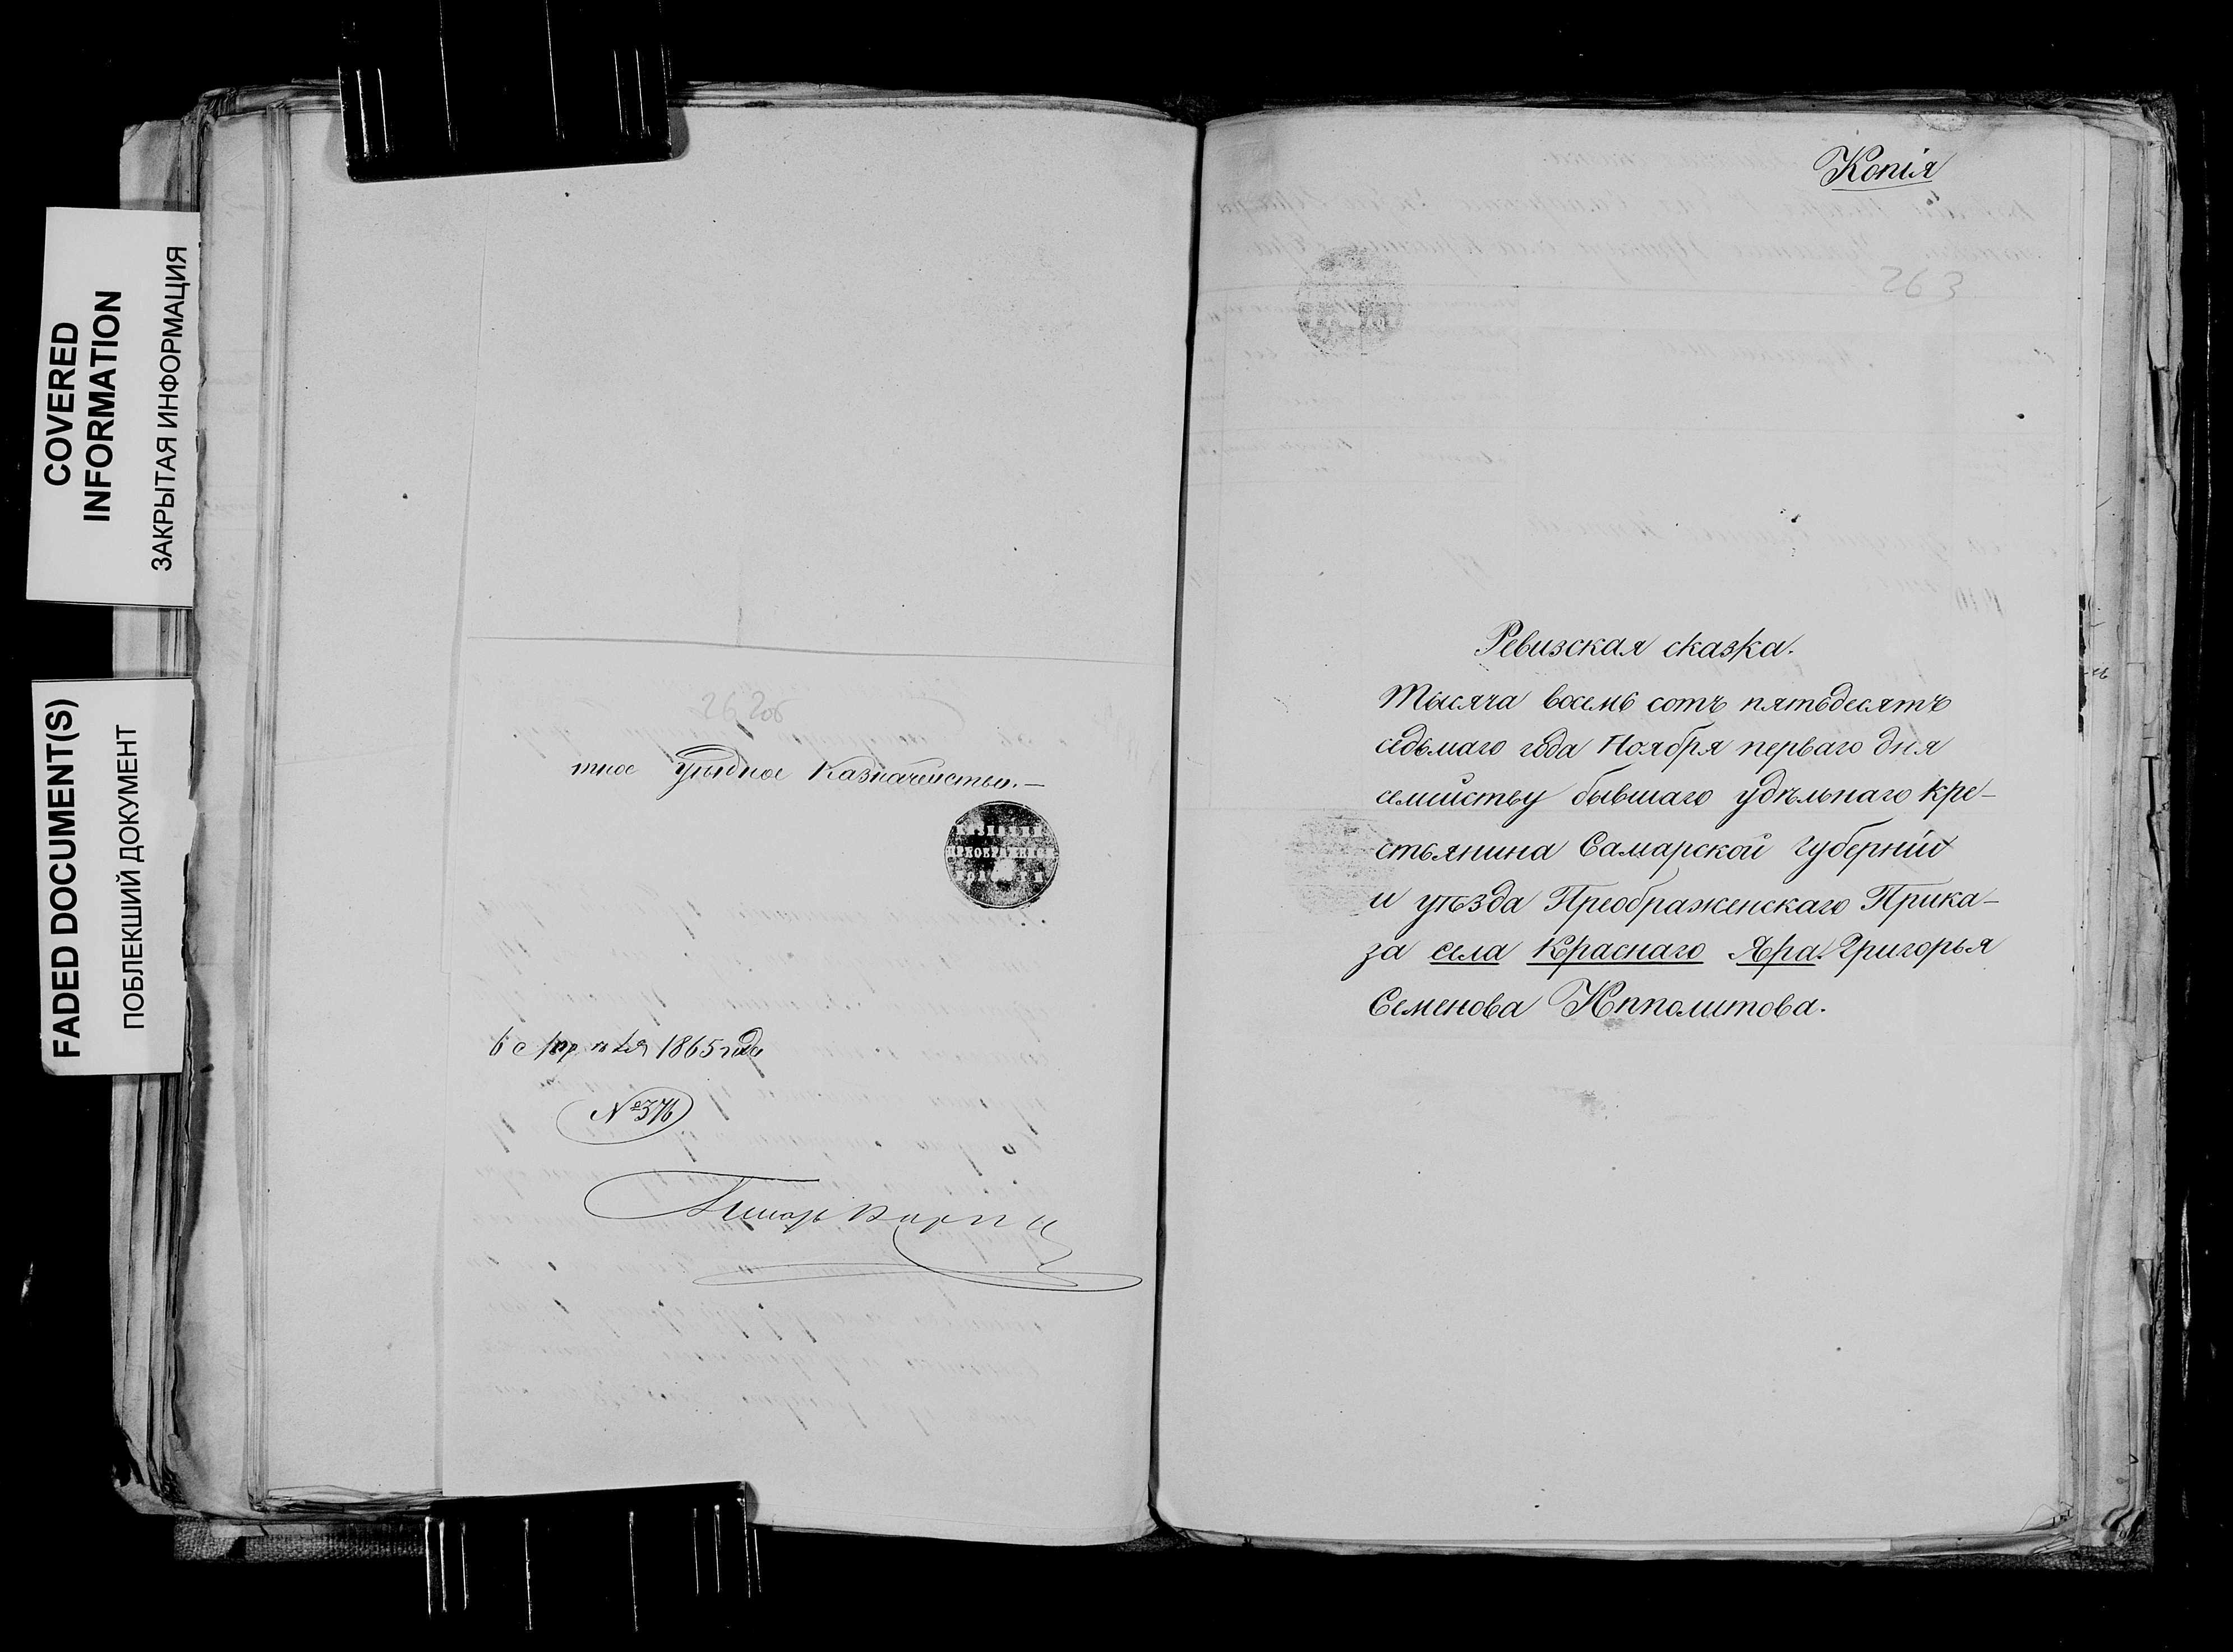 COVERED
INFORMATION
ЗАКРЫТАЯ ИНФОРМАЦИЯ
FADED DOCUMENT(S)
ПОБЛЕКШИЙ ДОКУМЕНТ
262об
тное уѣздное Казначейство.—
КАЗЕННАЯ
ПРЕОБРАЖЕНСК
1865 года
№ 376
Писарь
Копія
263
Ревизская сказка.
Тысяча восемь сотъ пятьдесятъ
седьмаго года Ноября перваго дня
семейству бывшаго удѣльнаго кре-
стьянина Самарской губерніи
и уѣзда Преображенскаго Прика-
за села Краснаго Яра Григорья
Семенова Ипполитова.